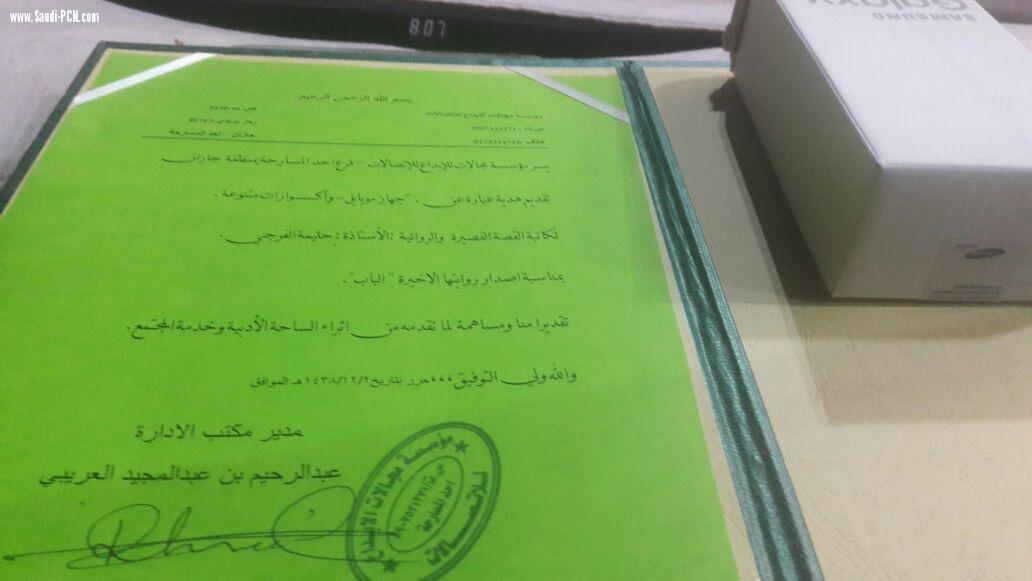 www.Saudi-PCN.com
807
SAMSUNG
Galaxy
بسم الله الرحمن الرحيم
مؤسسة مجالات الابداع للاتصالات
جازان - احد المسارحة
يسر مؤسسة مجالات للإبداع للإتصالات - فرع احد المسارحة بمنطقة جازان
تقديم هدية عبارة عن . "جهاز موبايل - وآكسسوارات متنوعة .
لكاتبة القصة القصيرة والروائية :الأستاذة : حليمة الفرجي.
بمناسبة اصدار روايتها الاخيرة " الباب".
تقديرا منا ومساهمة لما تقدمه من اثراء الساحة الأدبية وخدمة المجتمع.
والله ولي التوفيق،،،حرر بتاريخ ١٤٣٨/١٢/٢هـ الموافق
مدير مكتب الادارة
عبدالرحيم بن عبدالمجيد العريبي
مؤسسة مجالات الابداع
للاتصالات
احد المسارحة